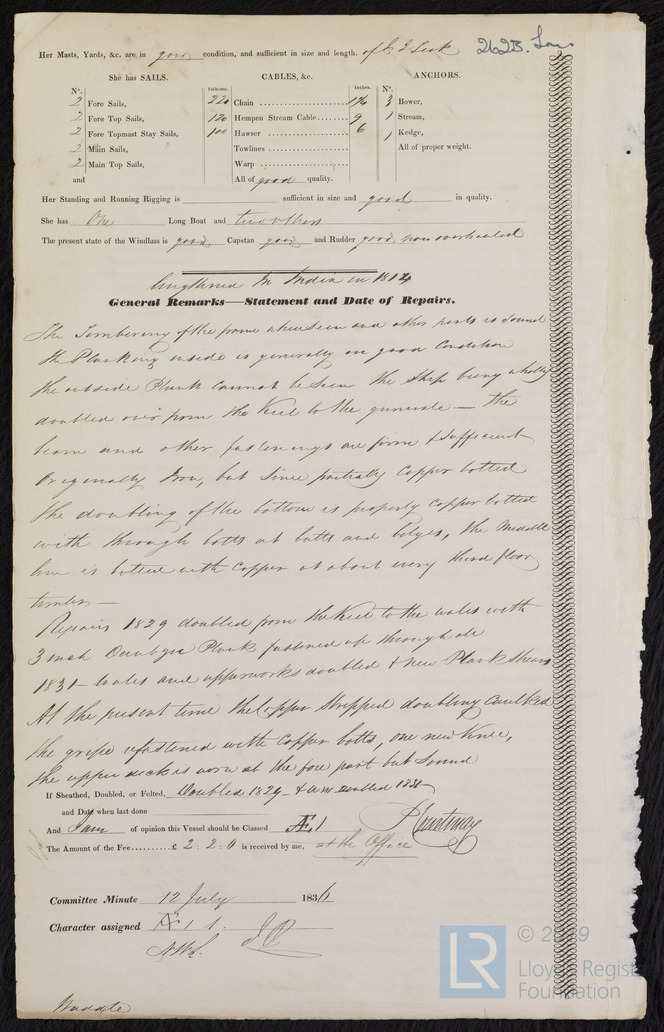 Her Masts, Yards, &c. are in good condition, and sufficient in size and length. of
262B. Lon
She has SAILS. CABLES, &c. ANCHORS.
Nº. Fathoms. Inches. Nº.
2 Fore Sails, 220 Chain 3 Bower,
2 Fore Top Sails, 120 Hempen Stream Cable 9 1 Stream,
2 Fore Topmast Stay Sails, 100 Hawser 6 1 Kedge,
2 Main Sails, Towlines All of proper weight.
2 Main Top Sails, Warp
and All of good quality.
Her Standing and Running Rigging is sufficient in size and good in quality.
She has One Long Boat and two others
The present state of the Windlass is good Capstan good and Rudder good now overhauled
lengthened in India in
General Remarks—Statement and Date of Repairs.
The Timbering of the frame when seen and other parts is Sound
the Planking inside is generally in good Condition
the outside Plank cannot be seen the Ship being wholly
doubled over from the Keel to the gunwale — the
beam and other fastenings are firm & Sufficient
Originally Iron, but since partially Copper bolted
the doubling of the bottom is properly Copper bolted
with through bolts at butts and bilges, the Middle
line is bolted with Copper at about every third floor
timber —
Repairs 1829 doubled from the Keel to the wales with
3 inch Plank fastened up through all
1831 — Wales and upperworks doubled & new Plank Shears
At the present time the Copper Stripped doubling Caulked
the gripe refastened with Copper bolts, one new Knee,
the upper deck is worn at the fore part but Sound
If Sheathed, Doubled, or Felted, Doubled 1829 — & doubled 1831
and Date when last done
And I am of opinion this Vessel should be Classed Æ 1 Courtenay
The Amount of the Fee £ 2 : 2 : 0 is received by me, at the Office
Committee Minute 12 July 1836
Character assigned Æ 1 1.
© 2019
LR
Lloyd's Register
Foundation